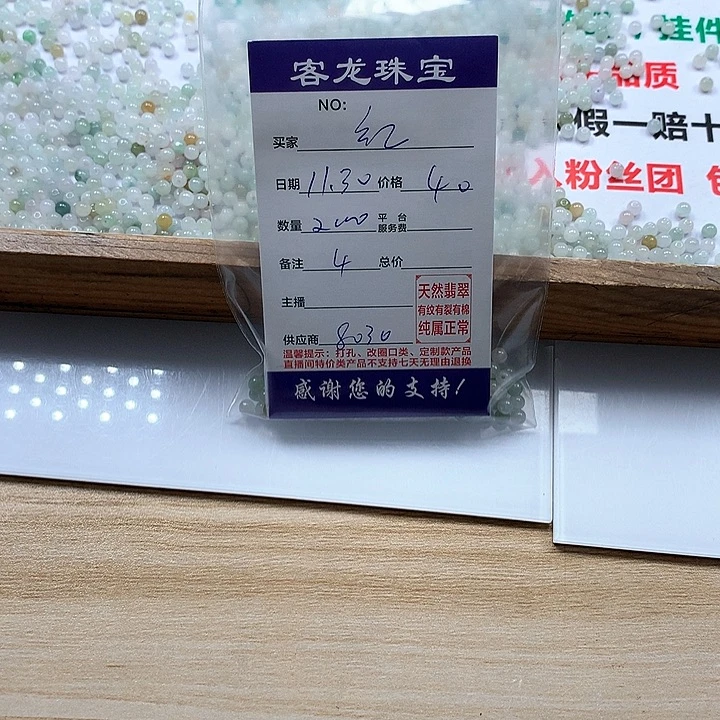 挂件
品质
假一赔十
入粉丝团 包
客龙珠宝
NO:
买家 红
日期 11.30 价格 40
数量 200 平台服务费
备注 4 总价
主播
天然翡翠
有纹有裂有棉
纯属正常
供应商 8030
温馨提示：打孔、改圈口类、定制款产品
直播间特价类产品不支持七天无理由退换
感谢您的支持！